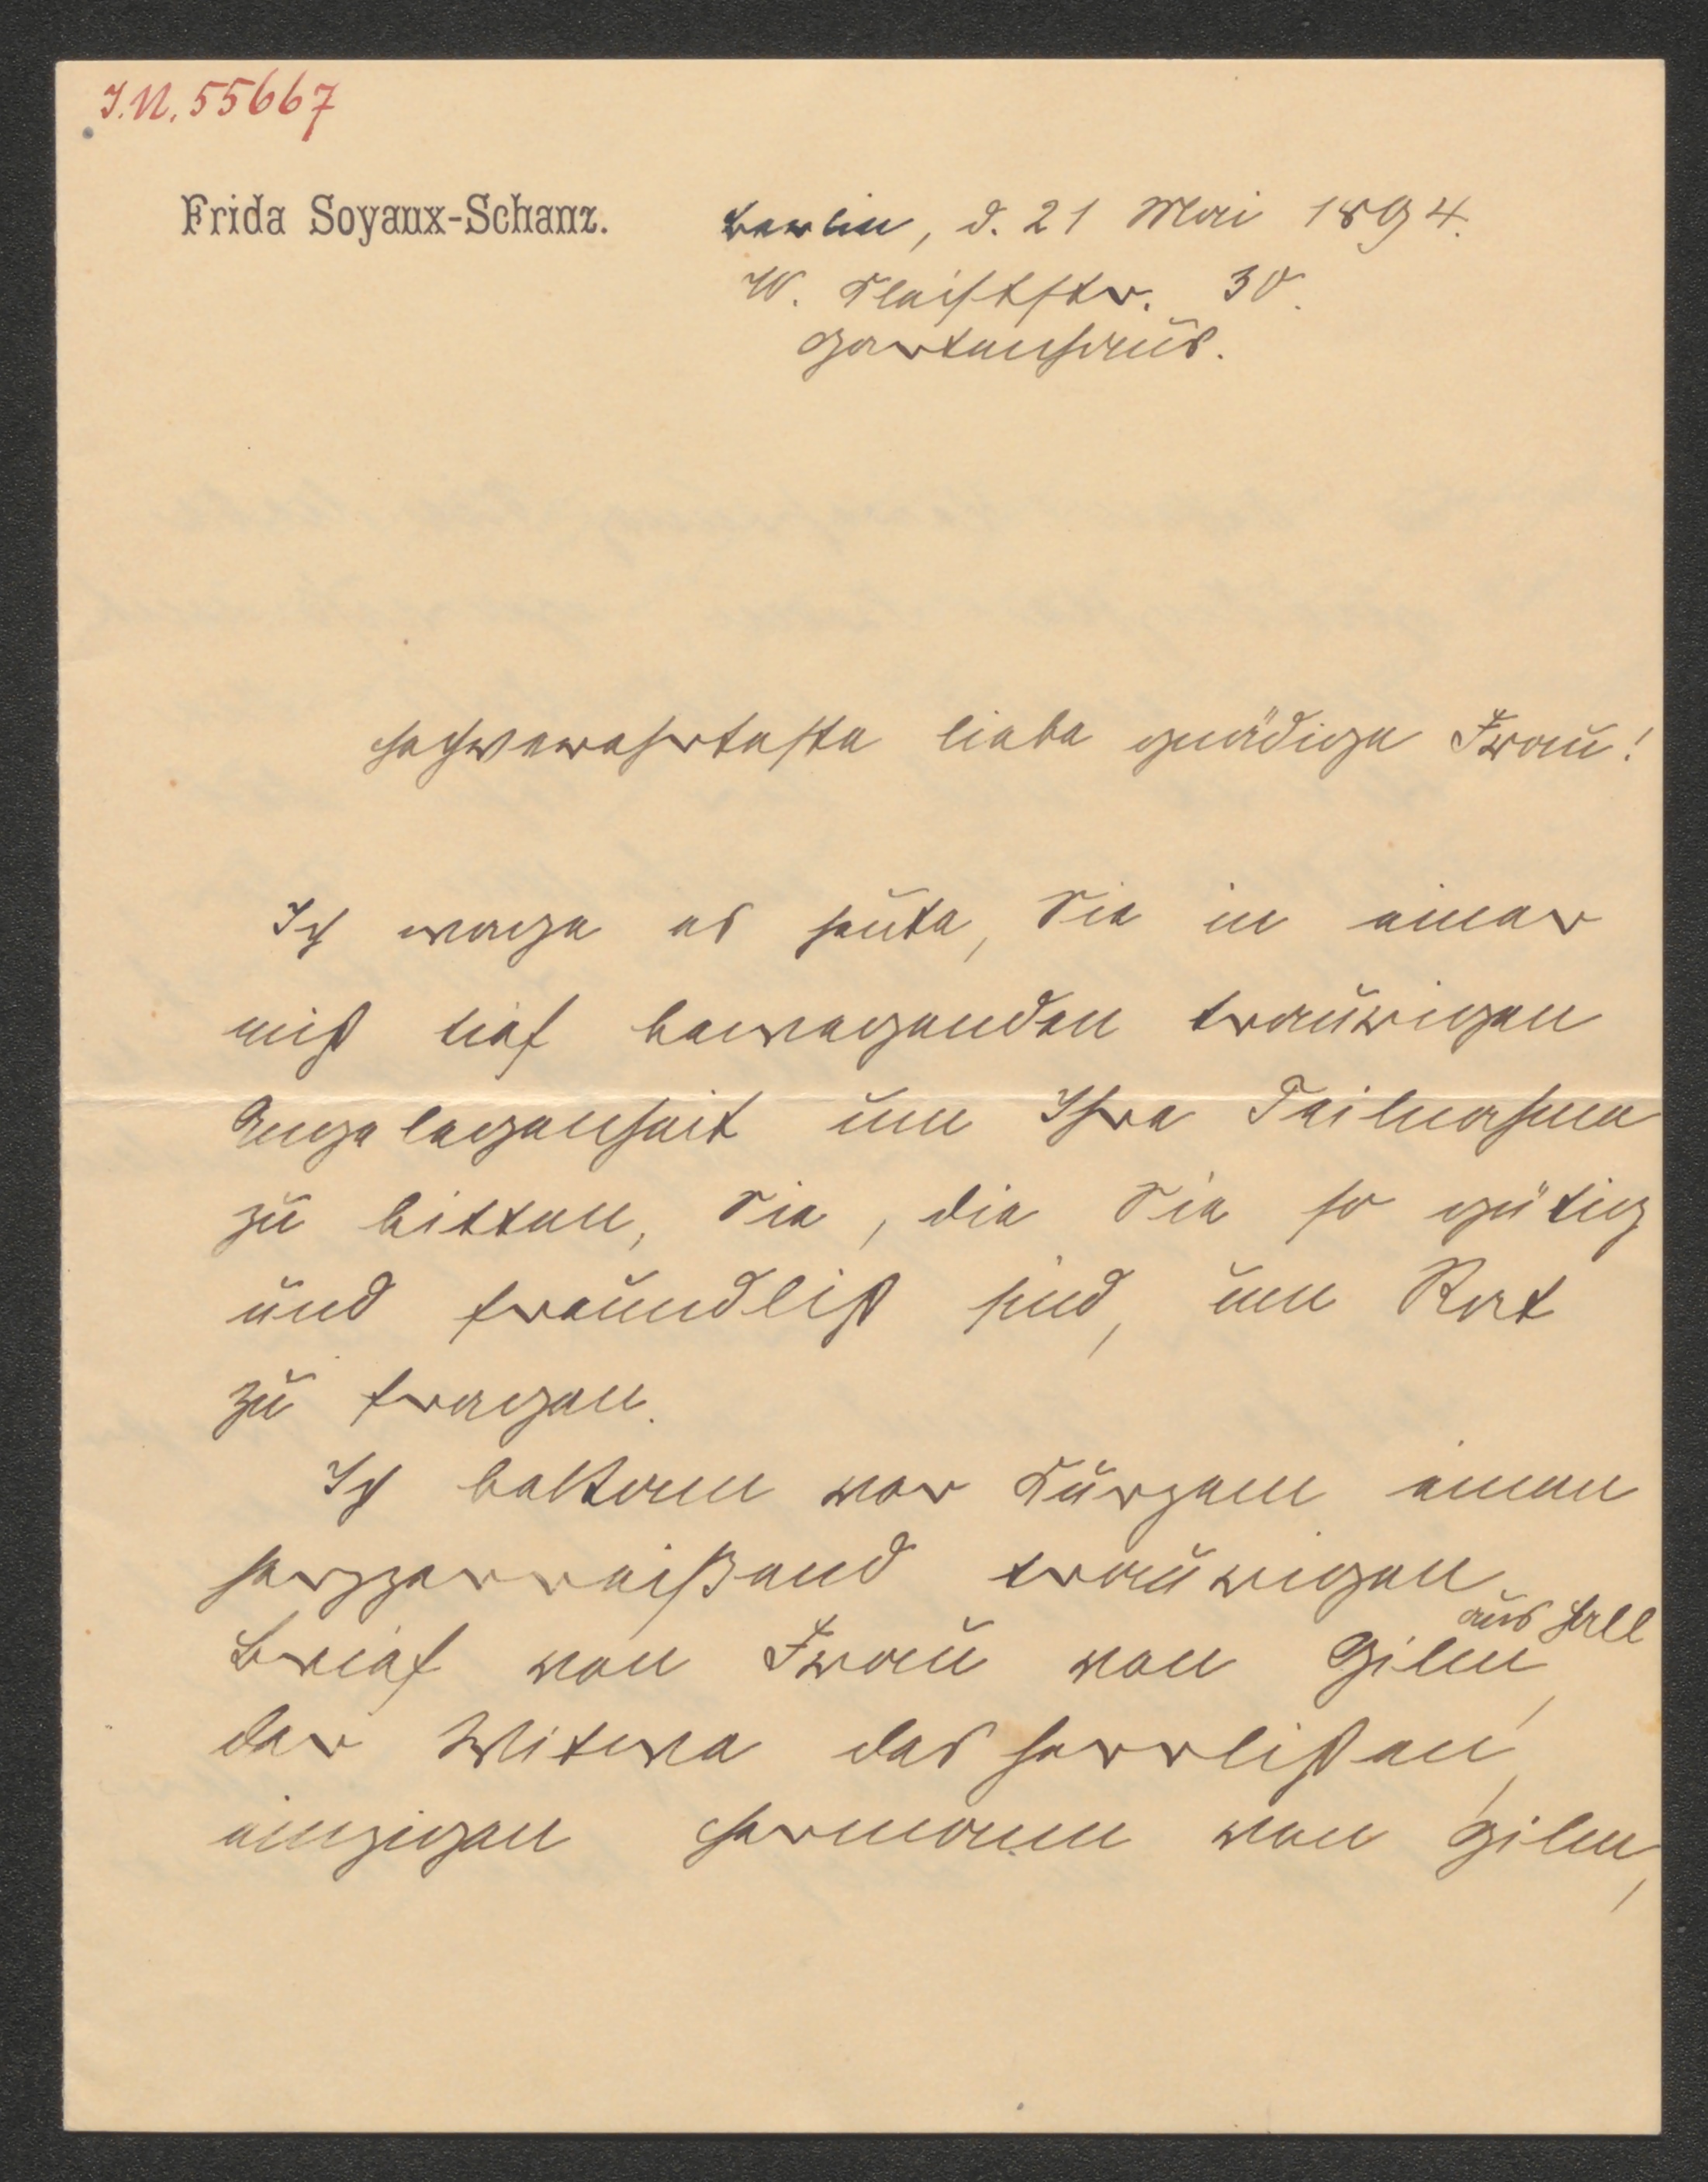 I.N. 55667
Frida Soyaux-Schanz.
Berlin, d. 21 Mai 1894.
W. Kleiststr. 30.
Gartenhaus.
Hochverehrteste liebe gnädige Frau!
Ich wage es heute, Sie in einer
mich tief bewegenden traurigen
Angelegenheit um Ihre Teilnahme
zu bitten, Sie, die Sie so gütig
und freundlich sind, um Rat
zu fragen.
Ich bekam vor Kurzem einen
herzzerreißend traurigen
aus Hall
Brief von Frau von Gilm,
der Witwe des herrlichen,
einzigen Hermann von Gilm,